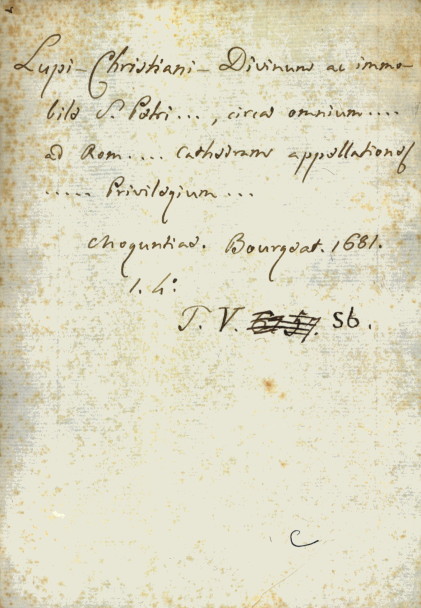 Lupi - Christiani - Divinum ac immo-
bile S. Petri ..., circa omnium ....
ad Rom .... Cathedram appellationes
..... Privilegium ...
Moguntiae. Bourgeat. 1681.
1. 4°
T. V. Sb.
C